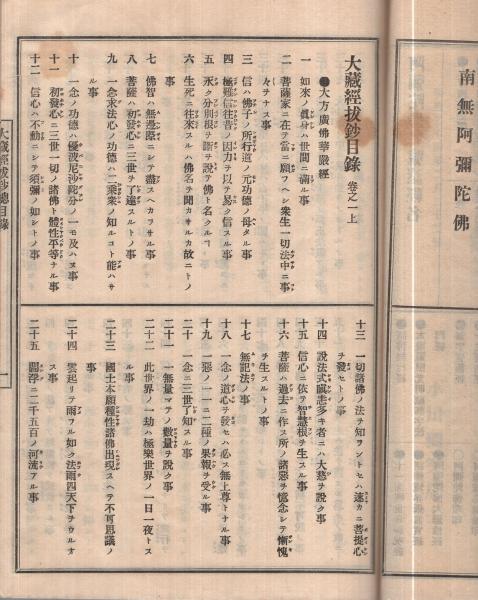 南無阿彌陀佛
大藏經拔鈔目錄 卷之一上
●大方廣佛華嚴經
一 如來ノ眞身ハ世間ニ滿ル事
二 菩薩家ニ在テ當ニ願フヘシ衆生一切法中ニ事
々ヲナス事
三 信ハ佛子ノ所行道ノ元功德ノ母タル事
四 極難信往昔ノ因力ヲ以テ易ク信スル事
五 永ク分別根ヲ斷ヲ說テ佛ト名クル事
六 生死ニ往來スルハ佛名ヲ聞カサルカ故ニトノ
事
七 佛智ハ無邊際ニシテ盡スヘカラサル事
八 菩薩ハ初發心ニ三世ヲ了達スルトノ事
九 一念求法心ノ功德ハ二乘衆ノ知ルコト能ハサ
ル事
十 一念ノ功德ハ優波尼沙陀分ノ一モ及ハヌ事
十一 初發心ニ三世一切ノ諸佛ト體性平等ナル事
十二 信心ハ不動ニシテ須彌ノ如シトノ事
十三 一切諸佛ノ法ヲ知ラントセハ速カニ菩提心
ヲ發セトノ事
十四 說法式瞋恚多キ者ニハ大慈ヲ說ク事
十五 信心ニ依テ智慧根ヲ生スル事
十六 菩薩ハ過去ニ作ス所ノ諸惡ヲ憶念シテ慚愧
ヲ生スルトノ事
十七 無記法ノ事
十八 一念ノ道心ヲ發セハ必ス無上尊トナル事
十九 一惡ノ一ニ二種ノ果報ヲ受ル事
二十 一念ニ三世ヲ了知スル事
二十一 一無量マテノ數量ヲ說ク事
二十二 此世界ノ一劫ハ極樂世界ノ一日一夜トス
ル事
二十三 國土本願種性諸佛出現スヘテ不可思議ノ
事
二十四 雲起リテ雨フル如ク法雨四天下ヲウルオ
ス事
二十五 閻浮ニ二千五百ノ河流アル事
大藏經拔鈔總目錄
一